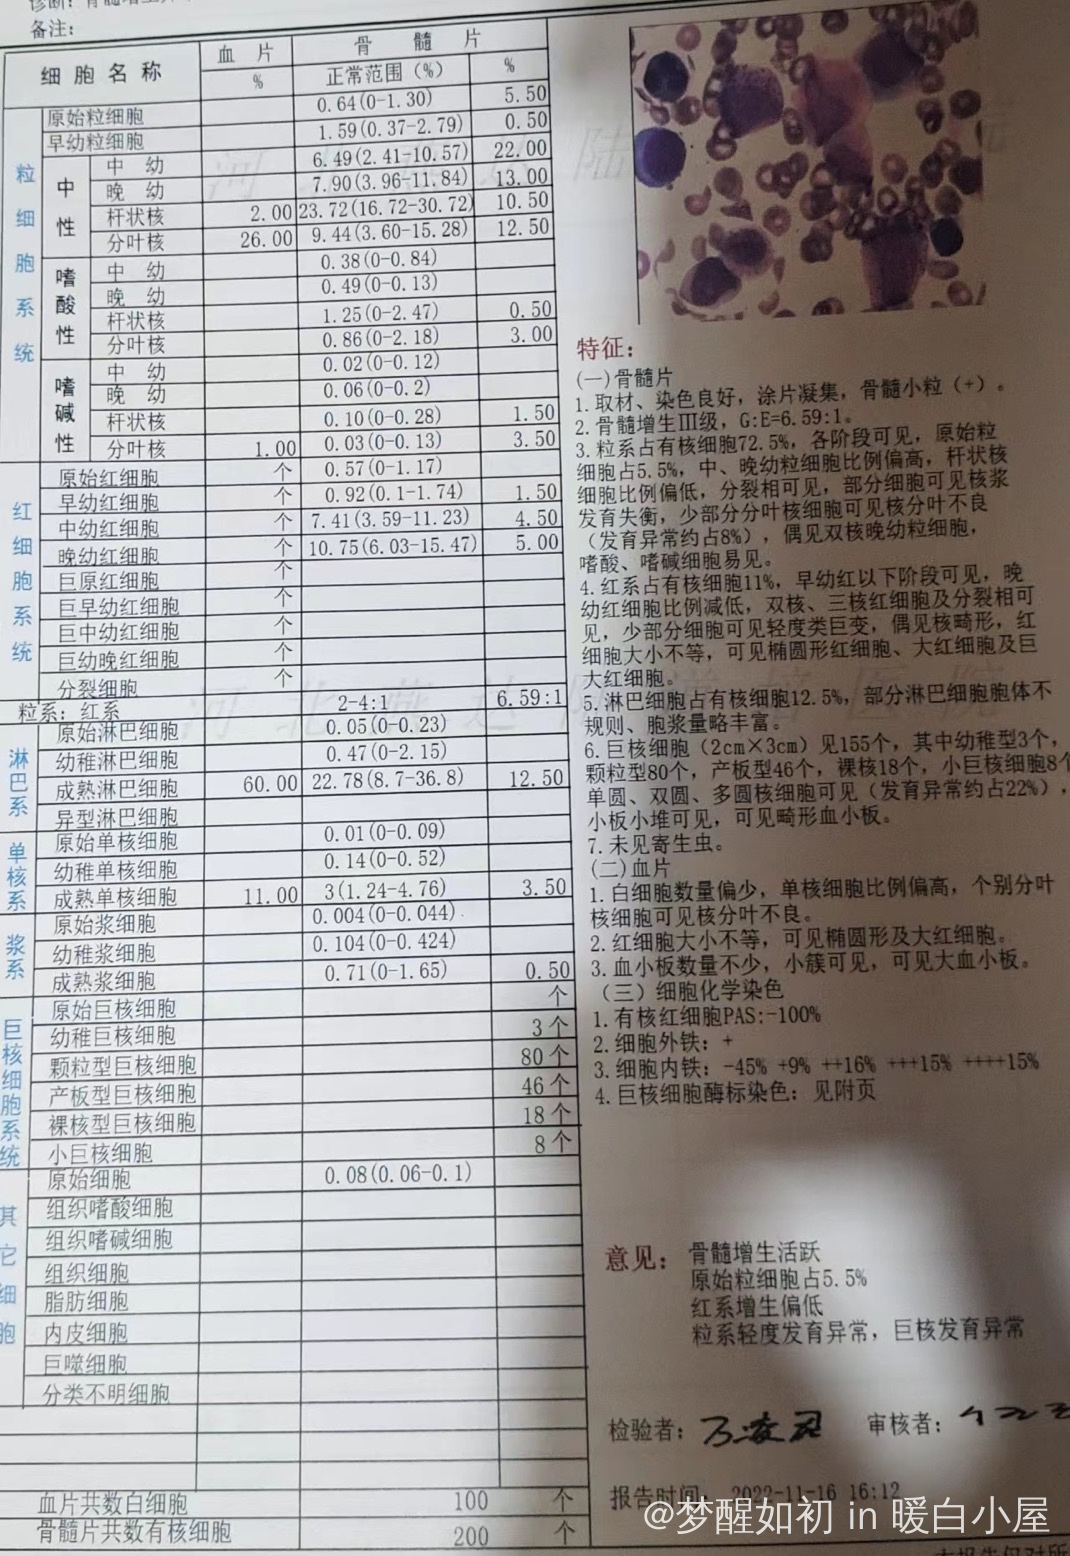 诊断：骨髓增生
备注：
细胞名称 血片 骨髓片
% 正常范围(%) %
粒细胞系统
原始粒细胞 0.64(0-1.30) 5.50
早幼粒细胞 1.59(0.37-2.79) 0.50
中性
中幼 6.49(2.41-10.57) 22.00
晚幼 7.90(3.96-11.84) 13.00
杆状核 2.00 23.72(16.72-30.72) 10.50
分叶核 26.00 9.44(3.60-15.28) 12.50
嗜酸性
中幼 0.38(0-0.84)
晚幼 0.49(0-0.13)
杆状核 1.25(0-2.47) 0.50
分叶核 0.86(0-2.18) 3.00
嗜碱性
中幼 0.02(0-0.12)
晚幼 0.06(0-0.2)
杆状核 0.10(0-0.28) 1.50
分叶核 1.00 0.03(0-0.13) 3.50
红细胞系统
原始红细胞 个 0.57(0-1.17)
早幼红细胞 个 0.92(0.1-1.74) 1.50
中幼红细胞 个 7.41(3.59-11.23) 4.50
晚幼红细胞 个 10.75(6.03-15.47) 5.00
巨原红细胞 个
巨早幼红细胞 个
巨中幼红细胞 个
巨幼晚红细胞 个
分裂细胞 个
粒系：红系 2-4:1 6.59:1
淋巴系
原始淋巴细胞 0.05(0-0.23)
幼稚淋巴细胞 0.47(0-2.15)
成熟淋巴细胞 60.00 22.78(8.7-36.8) 12.50
异型淋巴细胞
单核系
原始单核细胞 0.01(0-0.09)
幼稚单核细胞 0.14(0-0.52)
成熟单核细胞 11.00 3(1.24-4.76) 3.50
浆系
原始浆细胞 0.004(0-0.044)
幼稚浆细胞 0.104(0-0.424)
成熟浆细胞 0.71(0-1.65) 0.50
巨核细胞系统
原始巨核细胞 个
幼稚巨核细胞 3个
颗粒型巨核细胞 80个
产板型巨核细胞 46个
裸核型巨核细胞 18个
小巨核细胞 8个
其它细胞
原始细胞 0.08(0.06-0.1)
组织嗜酸细胞
组织嗜碱细胞
组织细胞
脂肪细胞
内皮细胞
巨噬细胞
分类不明细胞
血片共数白细胞 100 个
骨髓片共数有核细胞 200 个
特征：
(一)骨髓片
1.取材、染色良好，涂片凝集，骨髓小粒（+）。
2.骨髓增生Ⅲ级，G:E=6.59:1。
3.粒系占有核细胞72.5%，各阶段可见，原始粒
细胞占5.5%，中、晚幼粒细胞比例偏高，杆状核
细胞比例偏低，分裂相可见，部分细胞可见核浆
发育失衡，少部分分叶核细胞可见核分叶不良
（发育异常约占8%），偶见双核晚幼粒细胞，
嗜酸、嗜碱细胞易见。
4.红系占有核细胞11%，早幼红以下阶段可见，晚
幼红细胞比例减低，双核、三核红细胞及分裂相可
见，少部分细胞可见轻度类巨变，偶见核畸形，红
细胞大小不等，可见椭圆形红细胞、大红细胞及巨
大红细胞。
5.淋巴细胞占有核细胞12.5%，部分淋巴细胞胞体不
规则、胞浆量略丰富。
6.巨核细胞（2cm×3cm）见155个，其中幼稚型3个，
颗粒型80个，产板型46个，裸核18个，小巨核细胞8个
单圆、双圆、多圆核细胞可见（发育异常约占22%），
小板小堆可见，可见畸形血小板。
7.未见寄生虫。
(二)血片
1.白细胞数量偏少，单核细胞比例偏高，个别分叶
核细胞可见核分叶不良。
2.红细胞大小不等，可见椭圆形及大红细胞。
3.血小板数量不少，小簇可见，可见大血小板。
（三）细胞化学染色
1.有核红细胞PAS:-100%
2.细胞外铁：+
3.细胞内铁：-45% +9% ++16% +++15% ++++15%
4.巨核细胞酶标染色：见附页
意见：骨髓增生活跃
原始粒细胞占5.5%
红系增生偏低
粒系轻度发育异常，巨核发育异常
检验者：
审核者：
报告时间：2022-11-16 16:12
@梦醒如初 in 暖白小屋